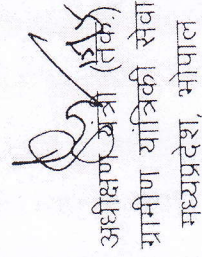 अधीक्षण यंत्री (तक.)
ग्रामीण यांत्रिकी सेवा
मध्यप्रदेश, भोपाल